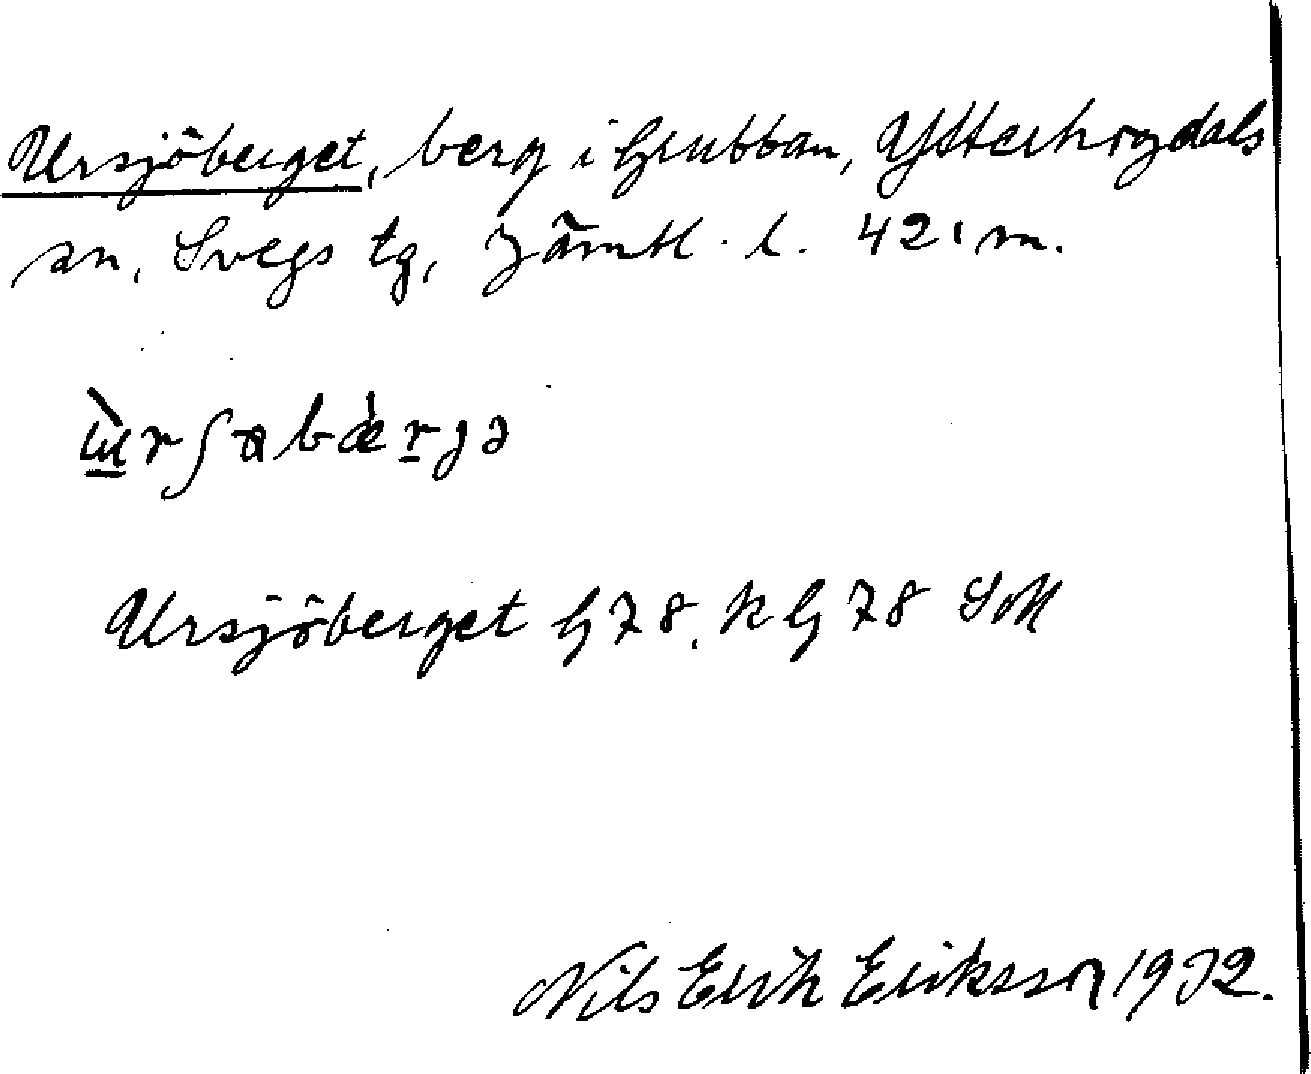 Ursjöberget, berg i Grubban, Ytterhogdals
sn, Svegs tg, Jämtl. l. 421 m.
Ursjöberget G 78. K G 78 SvM
Nils Erik Eriksson 1932.